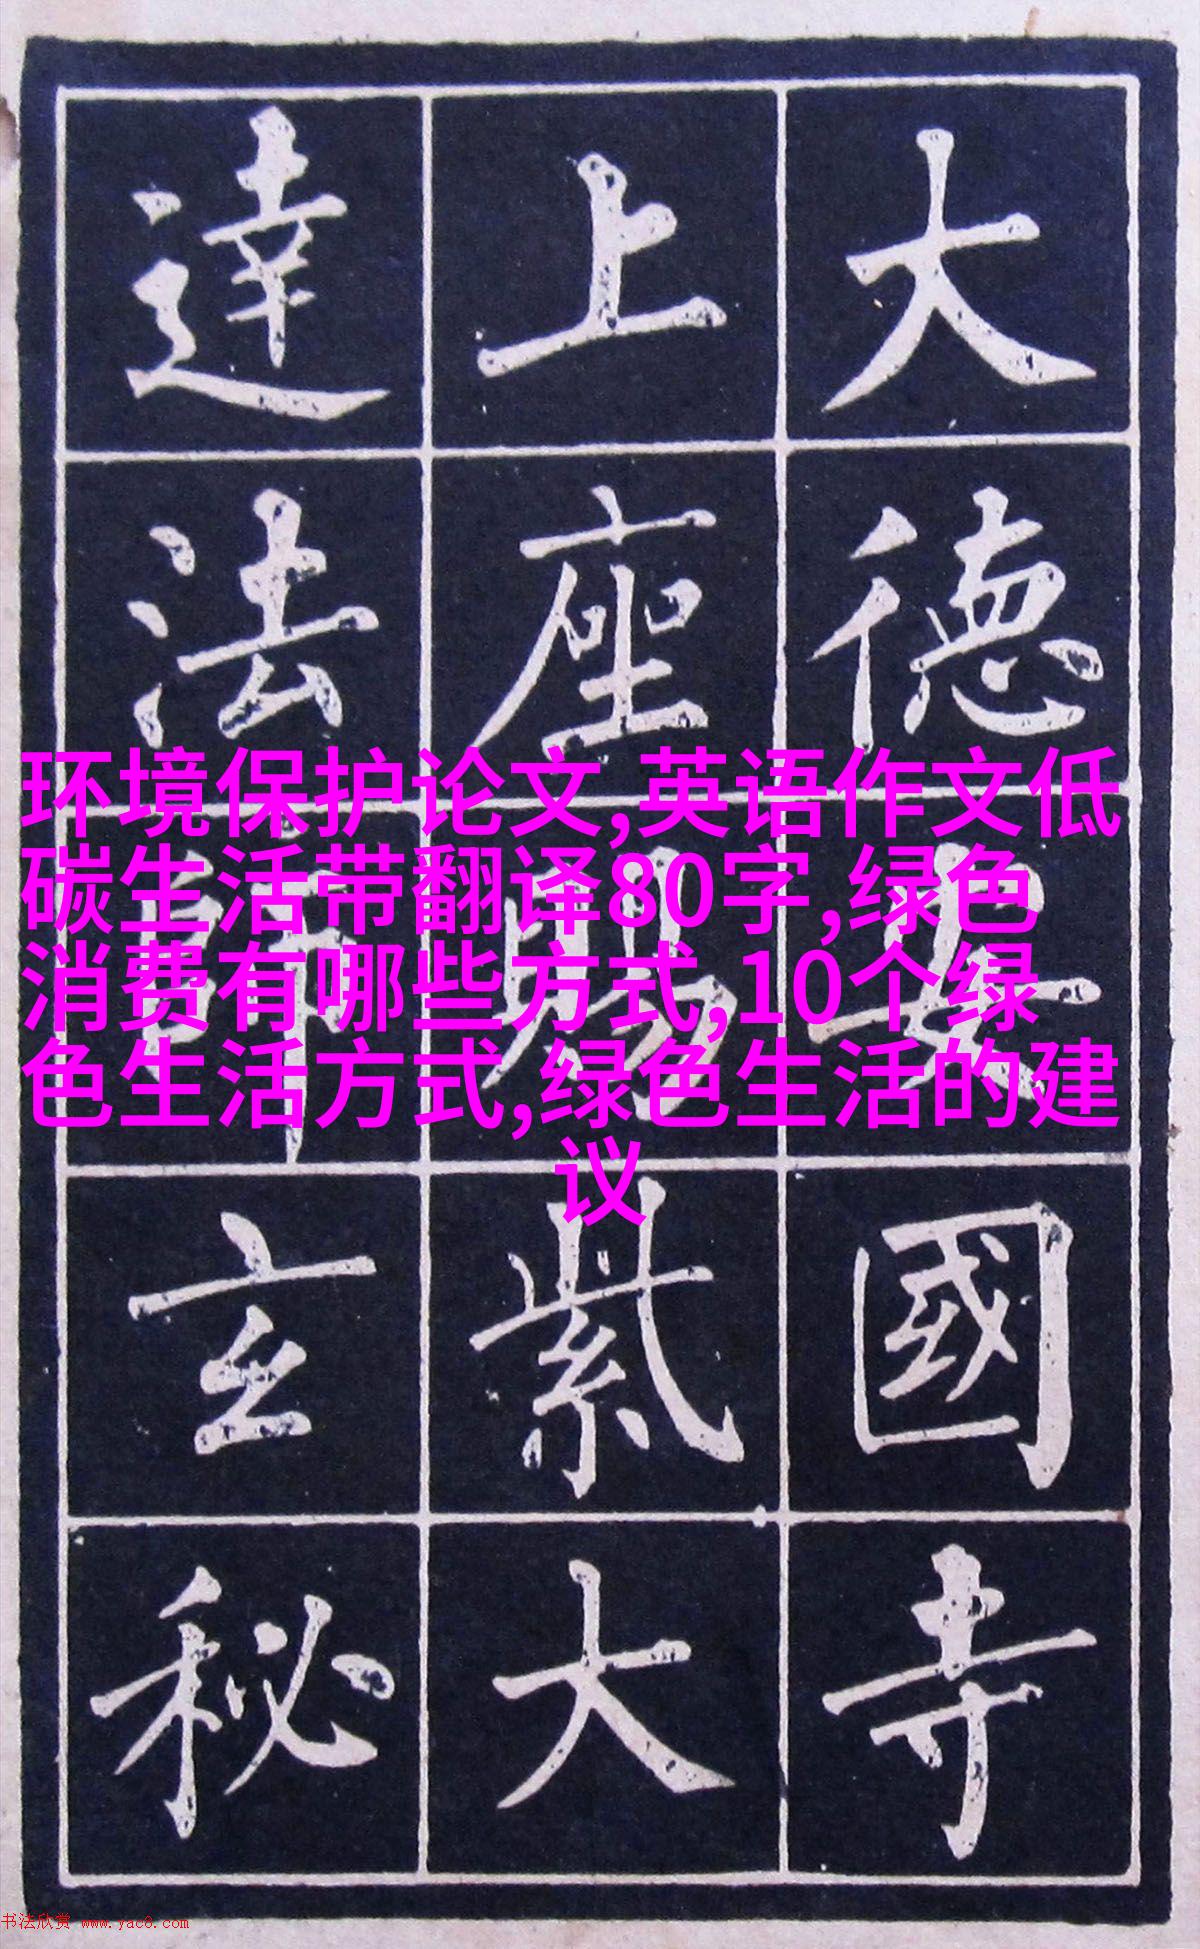 大德安國寺
上座賜紫大
達法師玄秘
环境保护论文,英语作文低
碳生活带翻译80字,绿色
消费有哪些方式,10个绿
色生活方式,绿色生活的建
议
书法欣赏 www.yac8.com